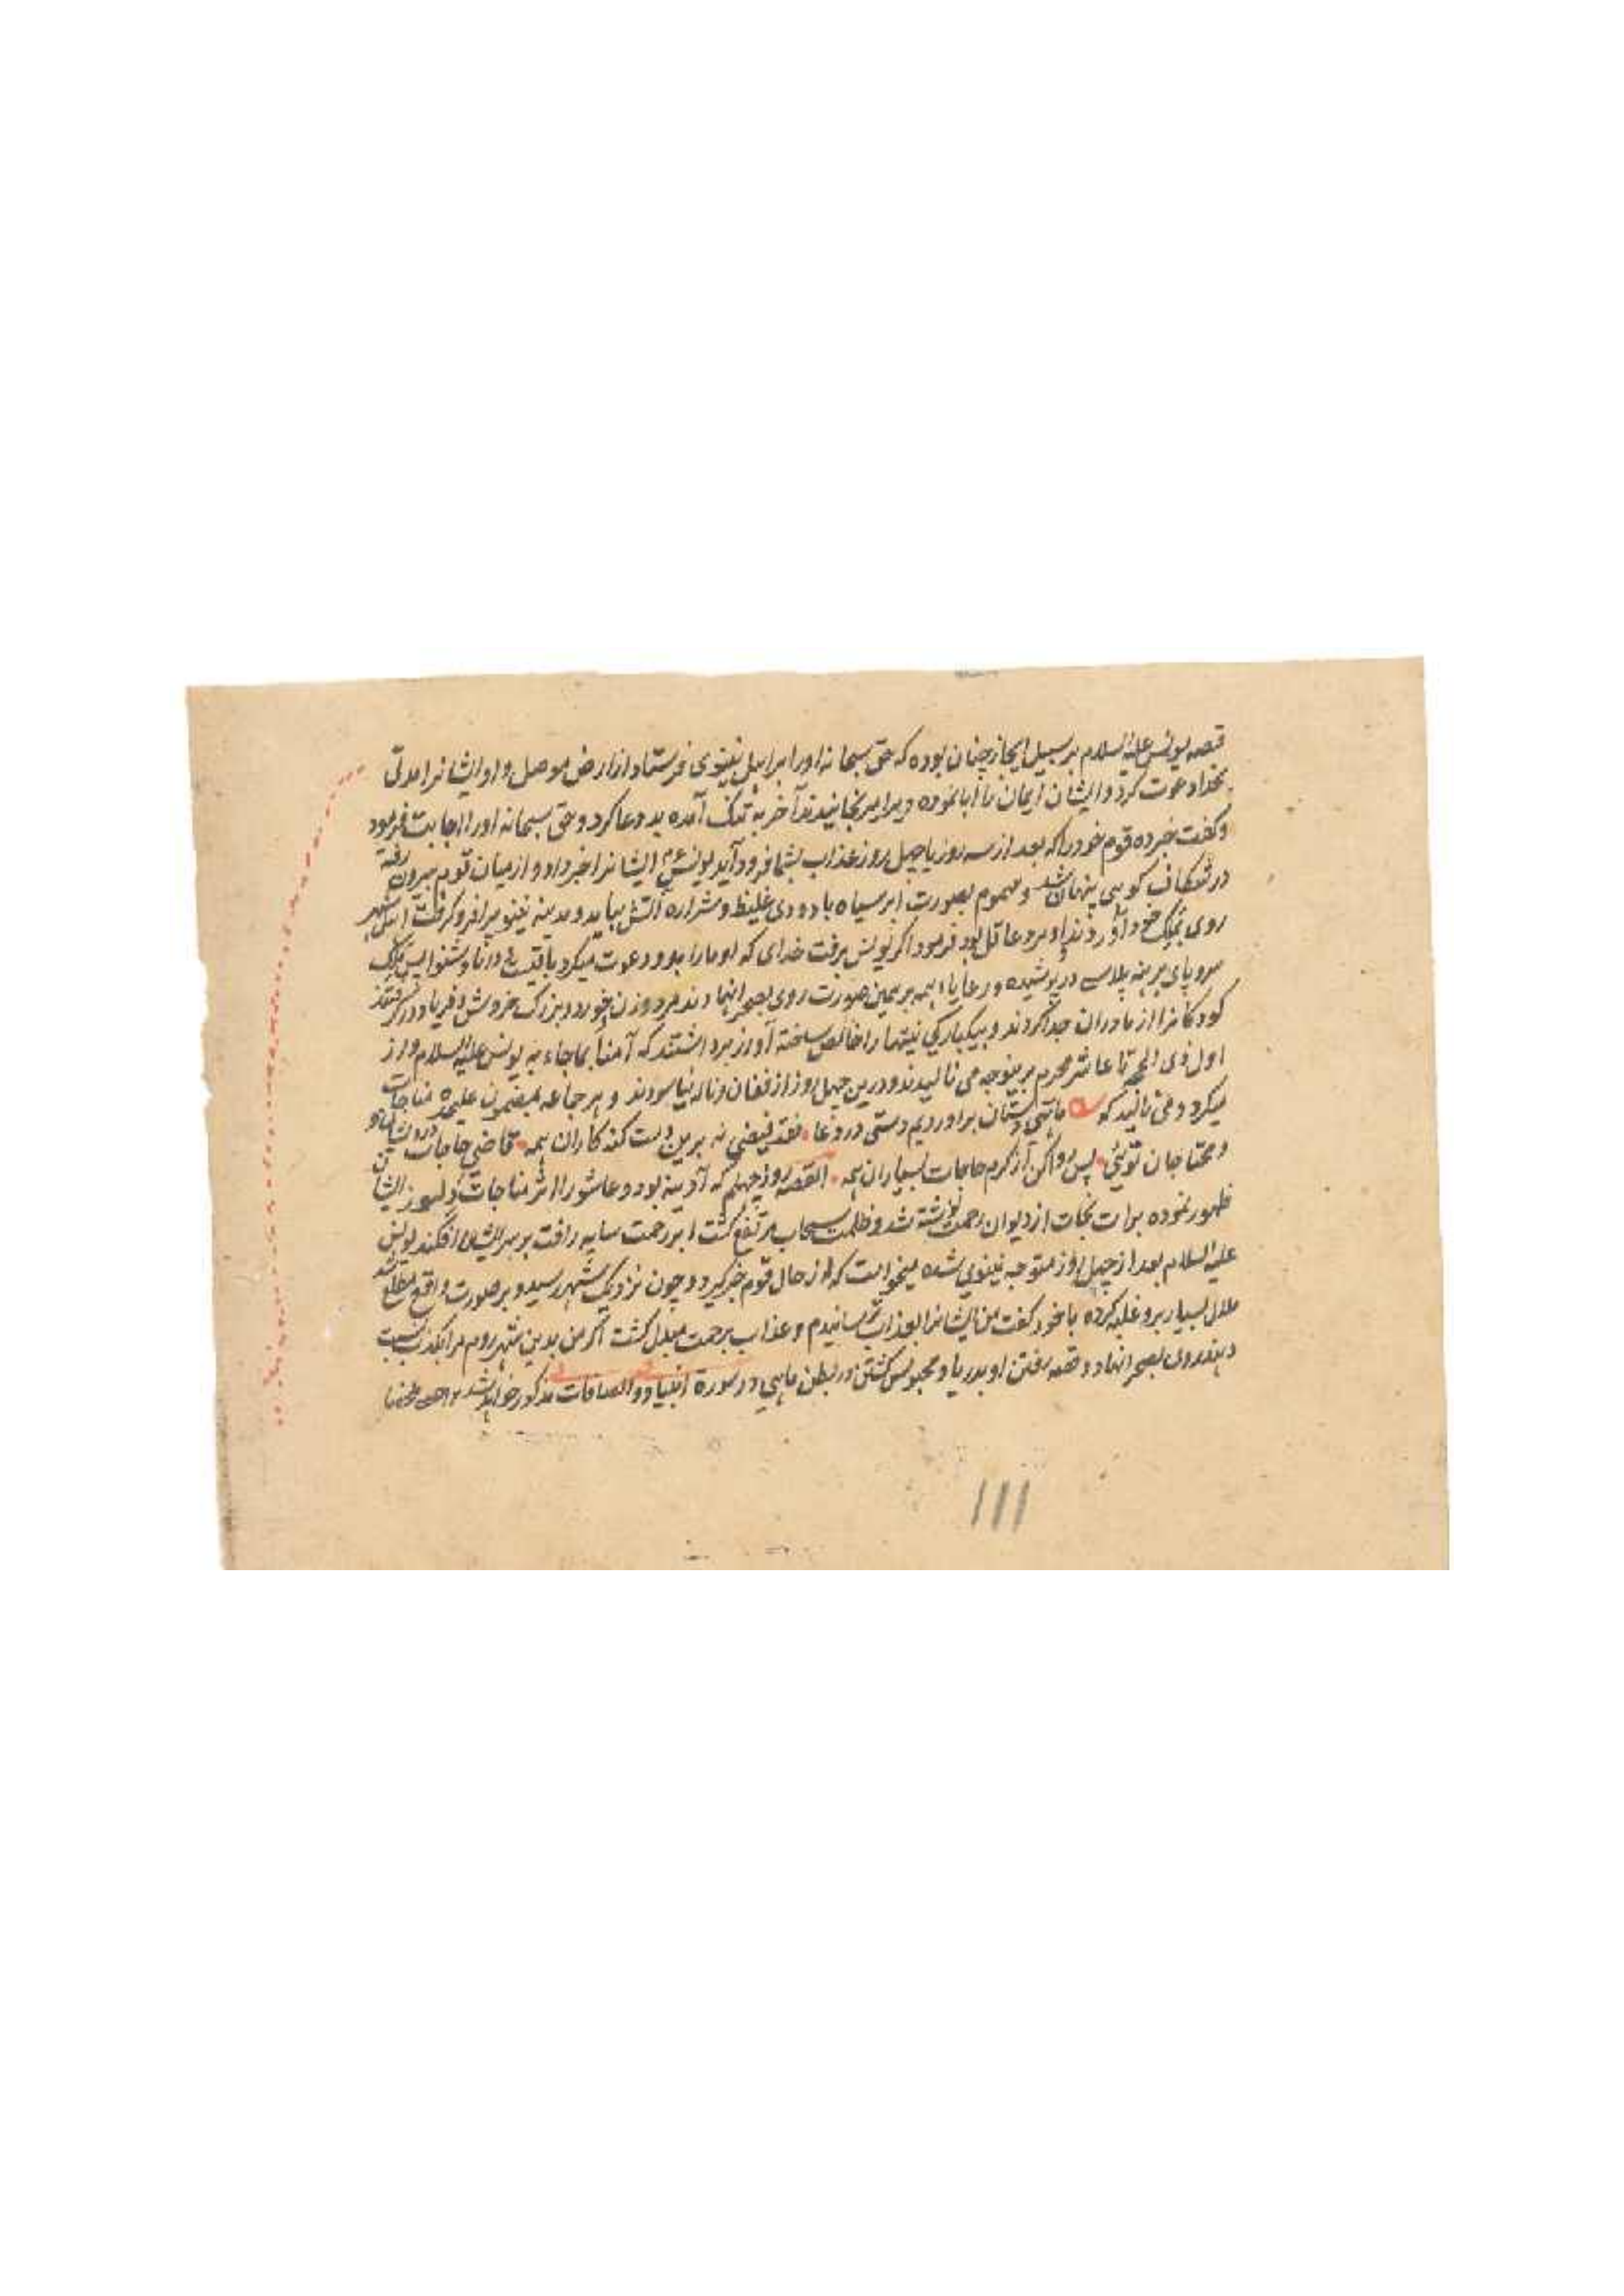 قصه یونس علیه السلام بر سبیل ایجاز چنان بوده که حق سبحانه او را براهل نینوی فرستاد از ارض موصل و او ایشانرا مدتی
بخدا دعوت کرد و ایشان ایمان را ابا نموده ویرا میرنجانیدند آخر به تنک آمده بد دعا کرد و حق سبحانه او را اجابت فرمود
وکفت خبر ده قوم خود را که بعد از سه روز یا چهل روز عذاب بشما فرود آید یونس ع م ایشانرا خبر داد و از میان قوم بیرون رفته
در شکاف کوهی پنهان شد و سموم بصورت ابر سیاه با دودی غلیظ و شراره آتش بیامد و مدینه نینوی را فرو کرفت اهل شهر
روی بملک خود آوردند او مرد عاقل بود فرمود اکر یونس برفت خدای که او ما را بدو دعوت میکرد باقیست پس ملک
سر و پای برهنه پلاسی در پوشیده و رعایا همه بر همین صورت روی بصحرا نهادند مرد و زن خورد و بزرک خروش و فریاد در کرفتند
کودکانرا از مادران جدا کردند و بیکبارکی نیتها را خالص ساخته آواز برداشتند که آمنا بما جاء به یونس علیه السلام و از
اول ذی الحجه تا عاشر محرم برینوجه می نالیدند و درین چهل روز از فغان و ناله نیاسودند و هر جماعه بمضمون علیحده مناجات
میکرد و می نالید که ما تهی دستان براوردیم دستی در دعا نقد فیضی نه برین دست کنه کاران همه قاضی حاجات درویشان
و محتاجان توئی پس روا کن از کرم حاجات بسیاران همه القصه روز چهلم که آدینه بود و عاشورا اثر مناجات دلسوز ایشان
ظهور نموده برات نجات از دیوان رحمت نوشته شد و ظلمت سحاب مرتفع کشت ابر رحمت سایه رافت بر سر ایشان افکند یونس
علیه السلام بعد از چهل روز متوجه نینوی شده میخواست که از حال قوم خبر کیرد و چون نزدیک شهر رسید و بر صورت واقع مطلع شد
ملال بسیار برو غلبه کرده با خود کفت من ایشانرا بعذاب ترسانیدم و عذاب برحمت مبدل کشت اکر من بدین شهر روم مرا بکذب نسبت
دهند روی بصحرا نهاد و قصه رفتن او بدریا و محبوس کشتن در بطن ماهی در سورة انبیا و والصافات مذکور خواهد شد
۱۱۱